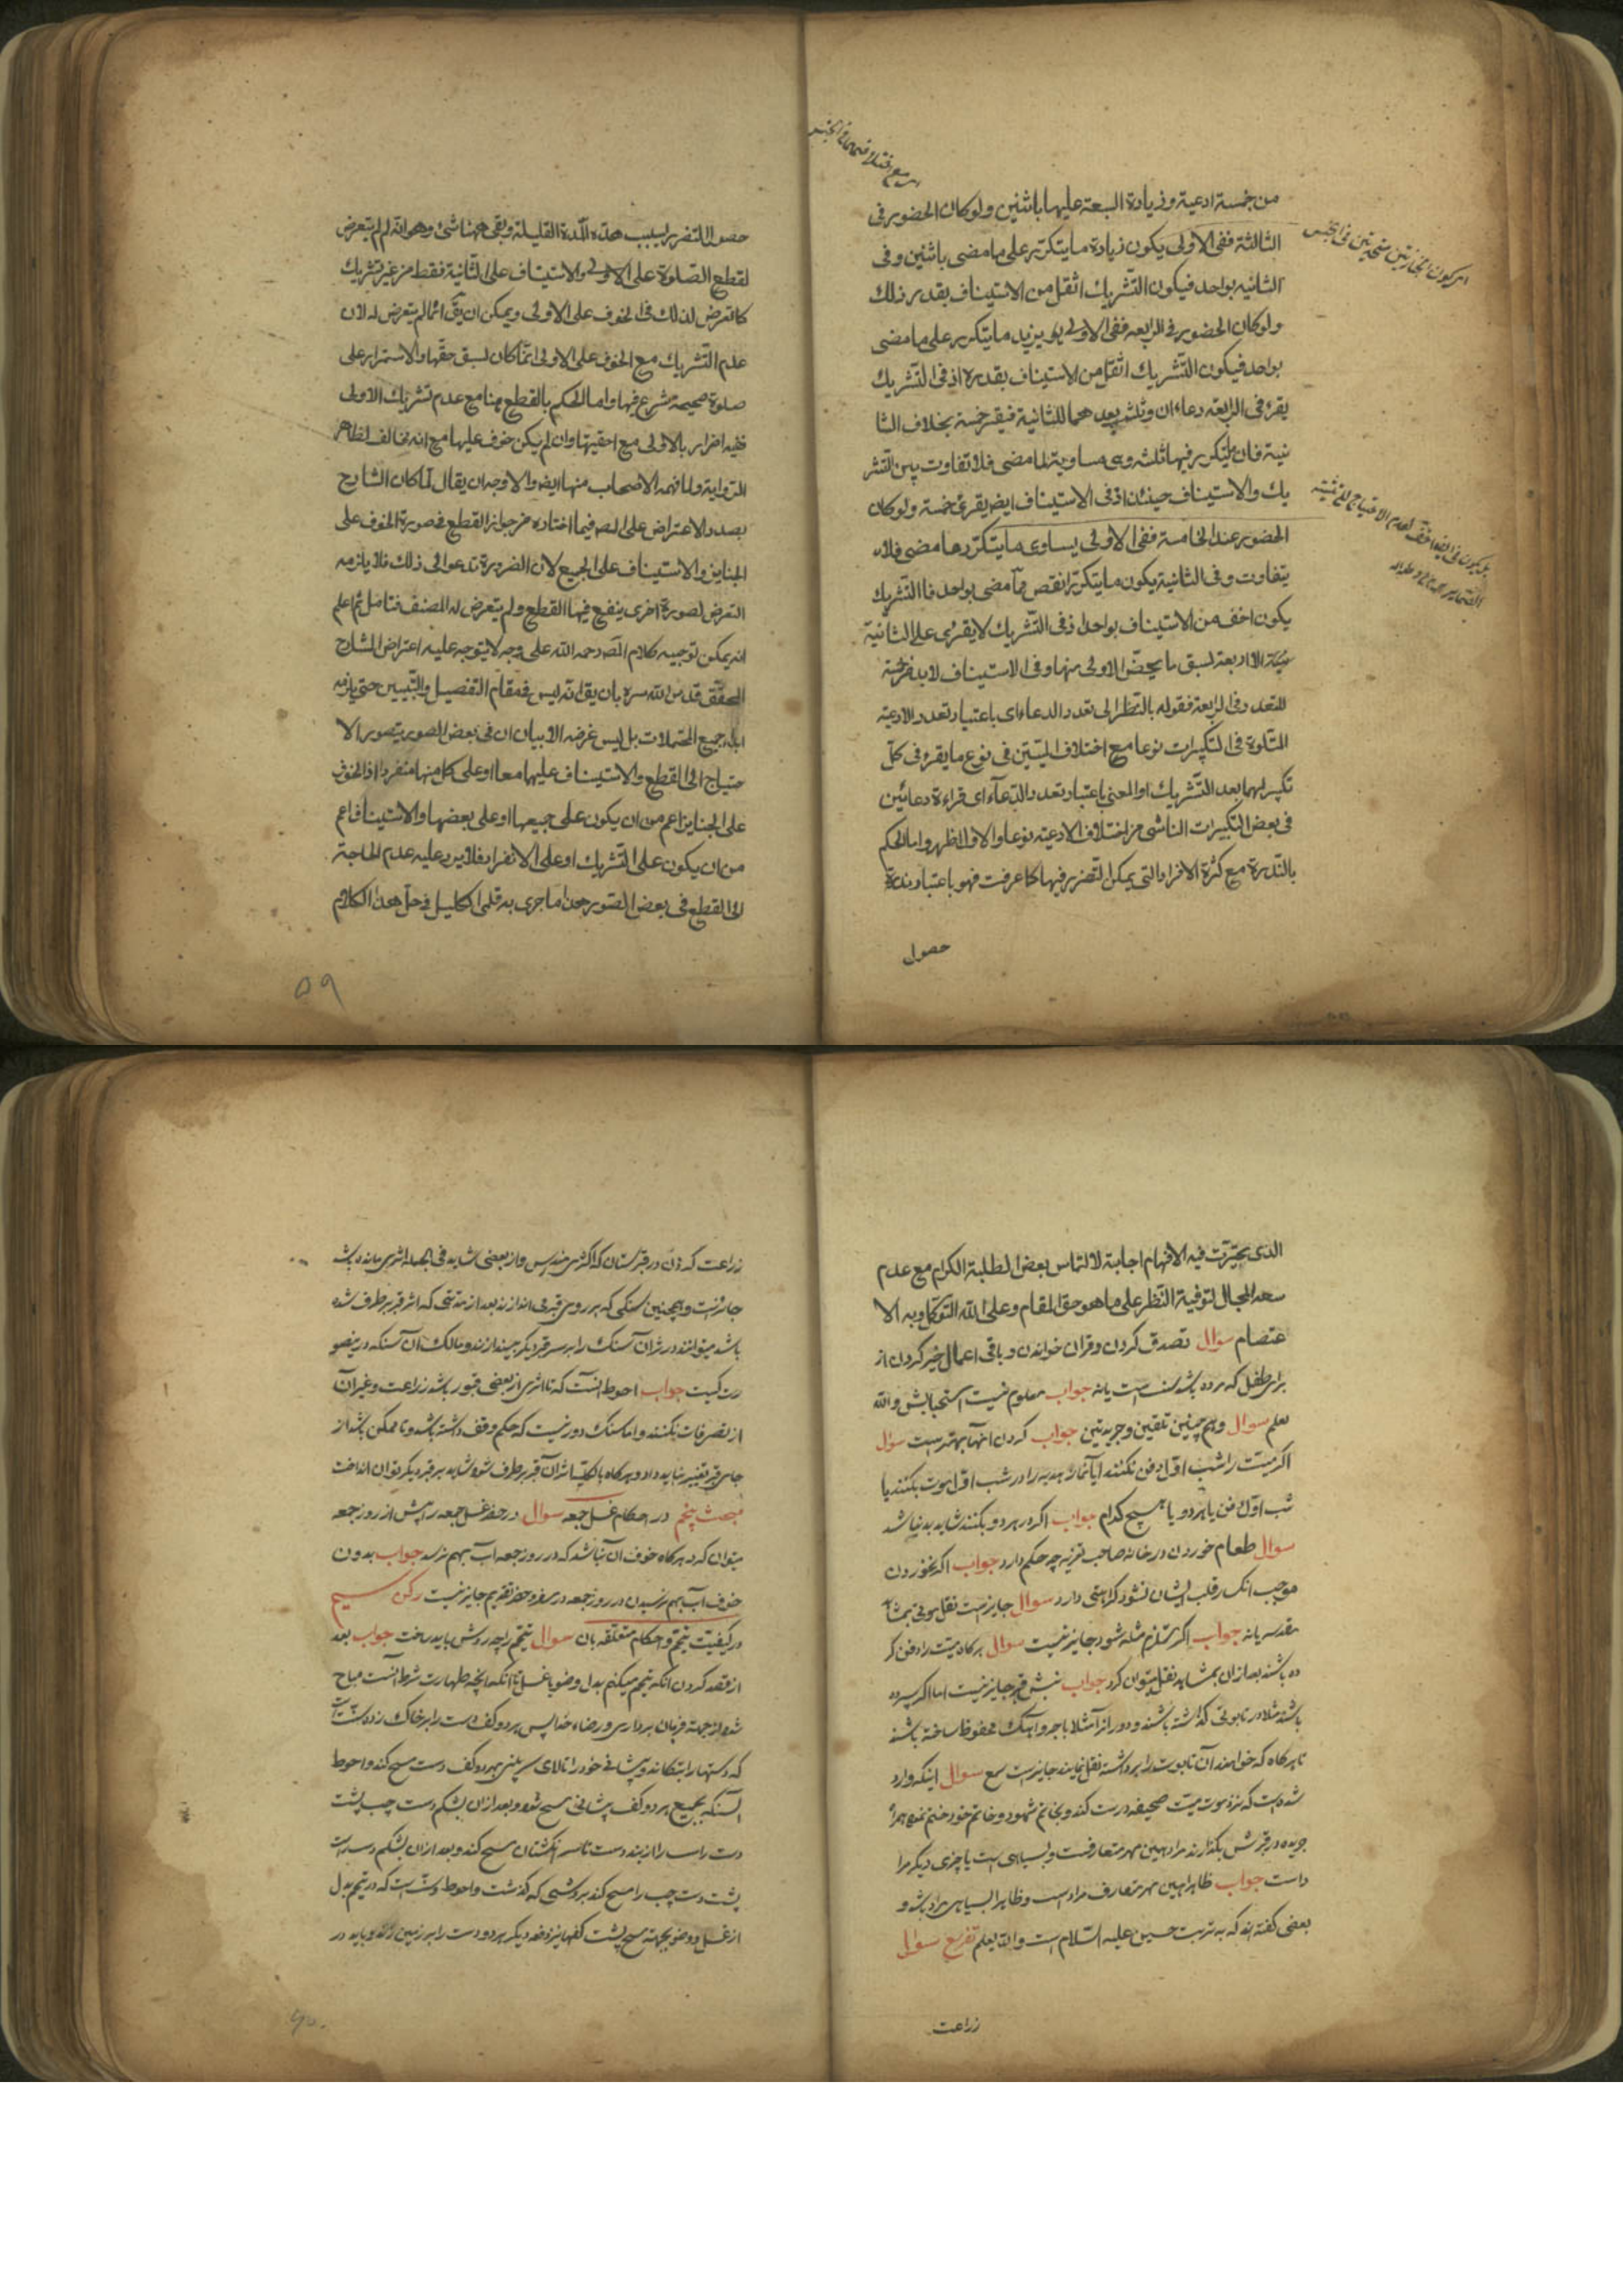 من خمسة ادعية وزيادة السبعة عليها باثنين ولو كان الحضور فى
الثالثة ففى الاولى يكون زيادة ما يتكرر على ما مضى باثنين وفى
الثانيه بواحد فيكون التشريك اثقل من الاستيناف بقدر ذلك
ولو كان الحضور فى الرابعه ففى الاولى يزيد ما يتكرر على ما مضى
بواحد فيكون التشريك اثقل من الاستيناف بقدره اذ فى التشريك
يقرء فى الرابعه دعاءان وثلثه بعدهما للثانية فيقرء خمسة بخلاف الثا
نية فان ما يتكرر فيها ثلثه وهى مساوية لما مضى فلا تفاوت بين التشر
يك والاستيناف حينئذ اذ فى الاستيناف ايض يقرء خمسة ولو كان
الحضور عند الخامسة ففى الاولى يساوى ما يتكرر ما مضى فلا
يتفاوت وفى الثانية يكون ما يتكرر انقص مما مضى بواحد فالتشريك
يكون اخف من الاستيناف بواحد اذ فى التشريك لا يقرء على الثانية
الا اربعة لسبق ما يخص الاولى منها وفى الاستيناف لابد من خمسة
للتعدد فى الرابعة فقوله بالنظر الى تعدد الدعاء اى باعتبار تعدد الادعية
المتلوة فى التكبيرات نوعا مع اختلاف الميتين فى نوع ما يقرء فى كل
تكبير لهما بعد التشريك او المعنى باعتبار تعدد الدعاء اى قراءة دعائين
فى بعض التكبيرات الناشى من اختلاف الادعية نوعا والاول اظهر واما الحكم
بالندرة مع كثرة الافراد التى يمكن التضرر فيها كما عرفت فهو باعتبار ندرة
حصول
حصول التضرر بسبب هذه المدة القليلة وبقى ههنا شئ وهو انه لم لم يتعرض
لقطع الصلوة على الاولى والاستيناف على الثانية فقط من غير تشريك
كما تعرض لذلك فى الخوف على الاولى ويمكن ان يق انما لم يتعرض له لان
عدم التشريك مع الخوف على الاولى انما كان لسبق حقها والاستمرار على
صلوة صحيحة شرع فيها واما الحكم بالقطع هنا مع عدم تشريك الاولى
ففيه اضرار بالاولى مع احقيتها وان لم يكن خوف عليها مع انه مخالف لظاهر
الرواية ولما فهمه الاصحاب منها ايض والاوجه ان يقال لما كان الشارح
بصدد الاعتراض على المص فيما اختاره من جواز القطع فى صورة الخوف على
الجنايز والاستيناف على الجميع لان الضرورة تدعو الى ذلك فلا يلزمه
التعرض لصورة اخرى ينفع فيها القطع ولم يتعرض له المصنف فتامل ثم اعلم
انه يمكن توجيه كلام المص رحمه الله على وجه لا يتوجه عليه اعتراض الشارح
المحقق قدس الله سره بان يق انه ليس فى مقام التفصيل والتبيين حتى يلزمه
ابداء جميع المحتملات بل ليس غرضه الا بيان ان فى بعض الصور يتصور الا
حتياج الى القطع والاستيناف عليهما معا او على كل منهما منفردا اذ الخوف
على الجنايز اعم من ان يكون على جميعها او على بعضها والاستيناف اعم
من ان يكون على التشريك او على الانفراد فلا يرد عليه عدم الحاجة
الى القطع فى بعض الصور هذا ما جرى به قلمى الكليل فى حل هذا الكلام
٥٩
الذى تحيرت فيه الافهام اجابة لالتماس بعض الطلبة الكرام مع عدم
سعه المجال لتوفية النظر على ما هو حق المقام وعلى الله التوكل وبه الا
عتصام سؤال تصدق كردن وقران خواندن وباقى اعمال خير كردن از
براى طفل كه مرده باشد سنت است يا نه جواب معلوم نيست استحبابش والله
يعلم سوال وهم چنين تلقين وجريدتين جواب كردن انها بهتر است سؤال
اكر ميت را شب اول دفن نكنند ايا نماز هديه را در شب اول موت بكنند يا
شب اول دفن يا هر دو يا هيچ كدام جواب اكر در هر دو بكنند شايد بد نباشد
سوال طعام خوردن در خانه صاحب تعزيه چه حكم دارد جواب اكر نخوردن
موجب انكسار قلب ايشان نشود كراهتى دارد سوال جايز است نقل موتى بمشاهد
مقدسه يا نه جواب اكر مستلزم مثله شود جايز نيست سوال هركاه ميت را دفن كر
ده باشند بعد از ان بمشاهد نقل ميتوان كرد جواب نبش قبر جايز نيست اما اكر سپرده
باشند مثلا در تابوتى كذاشته باشند و دور انرا مثلا با اجر و اهك محفوظ ساخته باشند
تا هركاه كه خواهند آن تابوت را برداشته نقل نمايند جايز است سوال اينكه وارد
شده است كه نزد موت ميت صحيفه درست كند و بخاتم شهود و خاتم خود ختم نموده همراه
جريده در قبرش بكذارند مراد همين مهر متعارفست و بسياهى است يا چيزى ديكر مراد
است جواب ظاهرا همين مهر متعارف مراد است و ظاهرا بسياهى مراد باشد و
بعضى كفته اند كه به تربت حسين عليه السلام است والله يعلم تفريع سؤال
زراعت
زراعت كردن در قبرستان كه اكثرش مندرس و از بعضى شايد فى الجمله اثرى مانده باشد
جائز است و همچنين سنكى كه بر روى قبر مى اندازند بعد از مدتى كه اثر قبر برطرف شده
باشد ميتوانند ورثه ان آن سنك را بر سر قبر ديكر بيندازند و مالك آن سنك در ينصو
رت كيست جواب احوط آنست كه تا اثرى از بعضى قبور باشد زراعت و غير آن
از تصرفات نكنند و اما سنك دور نيست كه حكم وقف داشته باشد و تا ممكن باشد از
جاى قبر تغيير نبايد داد و هركاه بالكليه اثر آن قبر برطرف شود شايد بر قبر ديكر توان انداخت
مبحث پنجم در احكام غسل جمعه سوال در حضر غسل جمعه را پيش از روز جمعه
ميتوان كرد هركاه خوف آن باشد كه در روز جمعه آب بهم نرسد جواب بدون
خوف آب بهم نرسيدن در روز جمعه در سفر و حضر تقديم جايز نيست ركن سيم
در كيفيت تيمم و احكام متعلقه بان سوال تيمم را چه روش بايد ساخت جواب بعد
از قصد كردن انكه تيمم ميكنم بدل وضو يا غسل تا انكه انچه طهارت شرط آنست مباح
شود از جهة فرمان بردارى و رضاء خدا پس هر دو كف دست را بر خاك زده
كه دستها را بتكاند و پيشانى خود را تا بالاى سر بينى بهر دو كف دست مسح كند و احوط
آنكه بجميع هر دو كف پيشانى مسح شود و بعد از ان بشكم دست چپ پشت
دست راست را از بند دست تا سر انكشتان مسح كند و بعد از ان بشكم دست راست
پشت دست چپ را مسح كند بروشى كه كذشت و احوط است كه در تيمم بدل
از غسل و وضو بجهة مسح پشت كفها نيز دفعه ديكر هر دو دست را بر زمين زند و بايد در